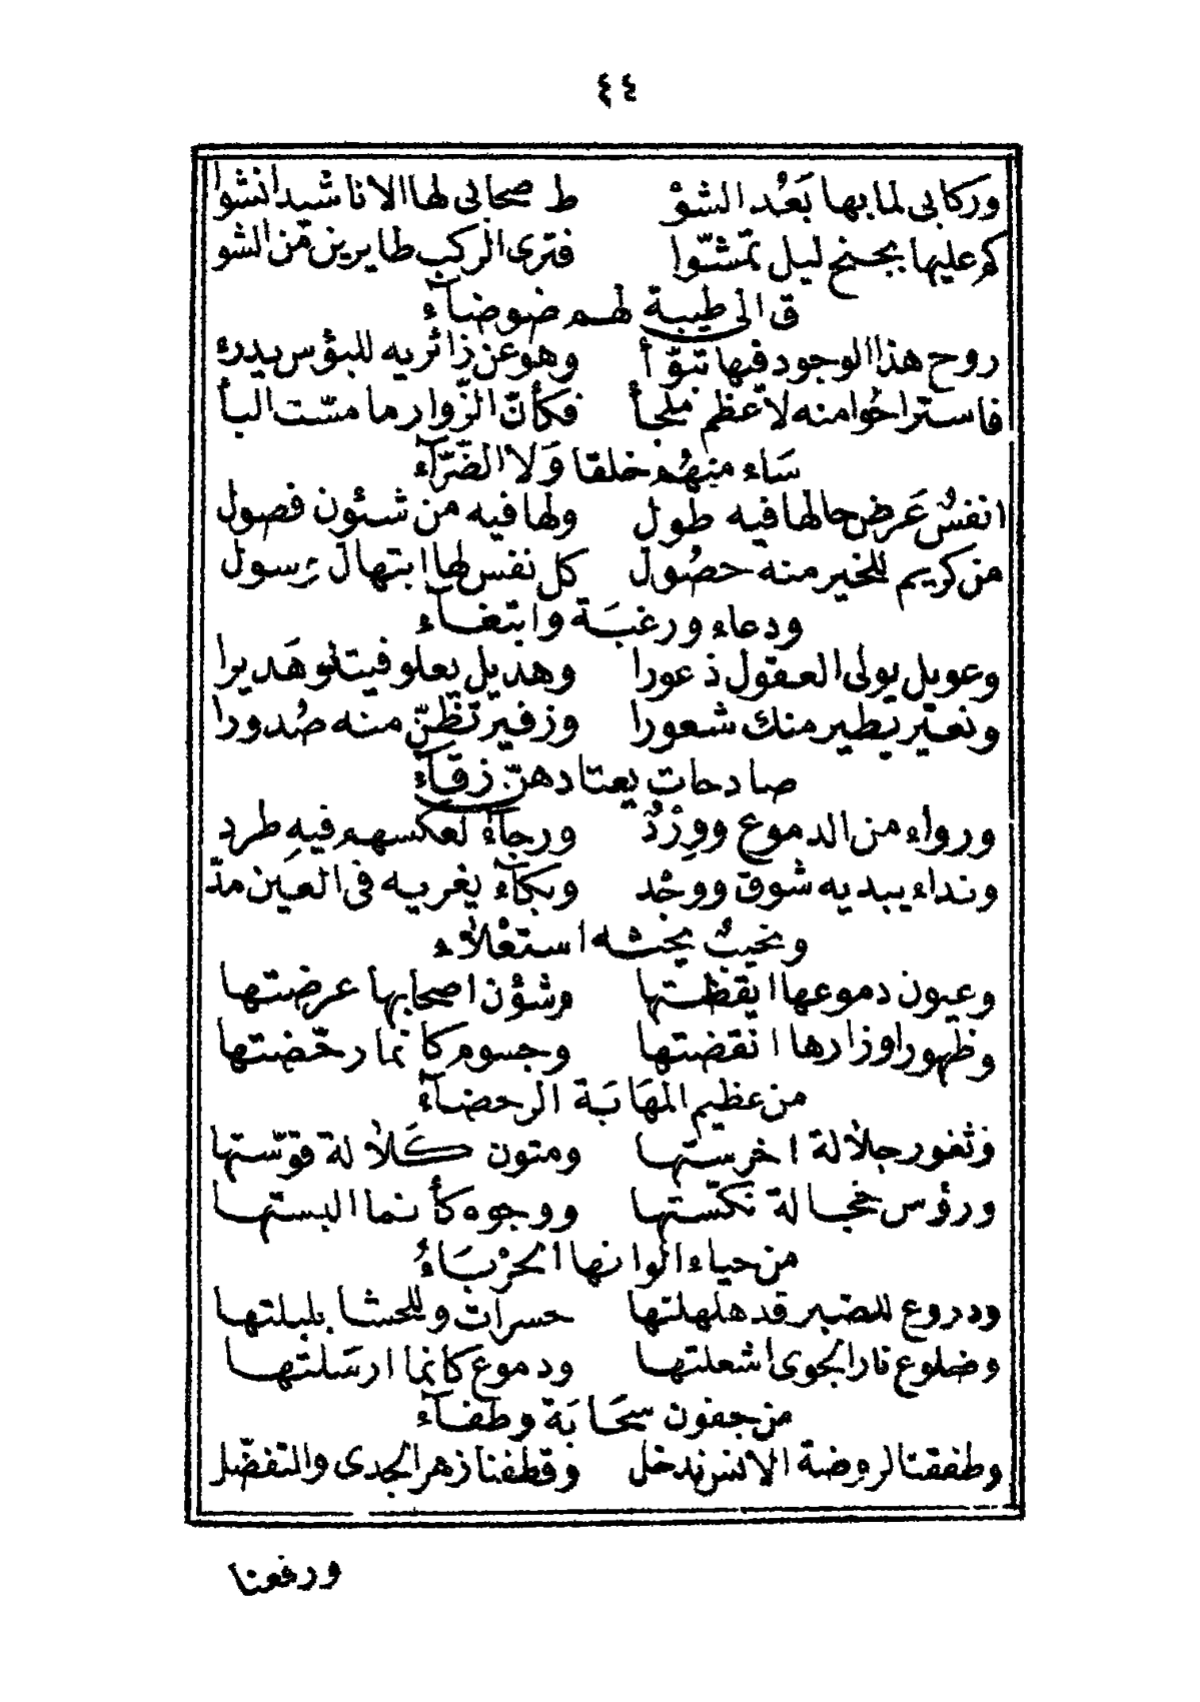 ٤٤
وركابى لما بها بَعُد الشوْ ط صحابى لها الاناشيد انشوا
كم عليها بجنح ليل تمشّوا فترى الركب طايرين من الشو
ق الى طيبة لهم ضوضآء
روح هذا الوجود فيها تبوّأ وهو عن زائريه للبؤس يدرئ
فاستراحُوا منه لاعظم ملجأ فكأنّ الزّوار ما مسّت البأ
سَاء منهُم خلقا وَلا الضّرّآء
انفسٌ عَرض حالها فيه طول ولها فيه من شئون فصول
من كريم للخير منه حصُول كل نفس لها ابتهال وسول
ودعاء ورغبَة وابتغآء
وعويل يولى العقول ذعورا وهديل يعلو فيتلو هَديرا
وتعثير يطير منك شعورا وزفير تظنّ منه صُدورا
صادحات يعتادهنّ زقآء
ورواء من الدموع ووِرْدٌ ورجآء لعكسهم فيهِ طرد
ونداء يبديه شوق ووجْد وبكآء يغريه فى العين مدّ
ونحيبٌ يحثه استعْلاء
وعيون دموعها ايقظتها وشؤن اصحابها عرضتها
وظهور اوزارها انقضتها وجسوم كانما رحّضتها
من عظيم المهَابَة الرحضآء
وثغور جلالة اخرستها ومتون كَلالة قوّستها
ورؤس خجالة نكّستها ووجوه كأنما البستها
من حياء الوانها الحرْبَاءُ
ودروع للصبر قد هلهلتها حسرات وللحشا بلبلتها
وضلوع نار الجوى اشعلتها ودموع كانما ارسَلتها
من جفون سحَابَة وطفآء
وطفقنا لروضة الانس ندخل وقطفنا زهر الجدى والتفضّل
ورفعنا